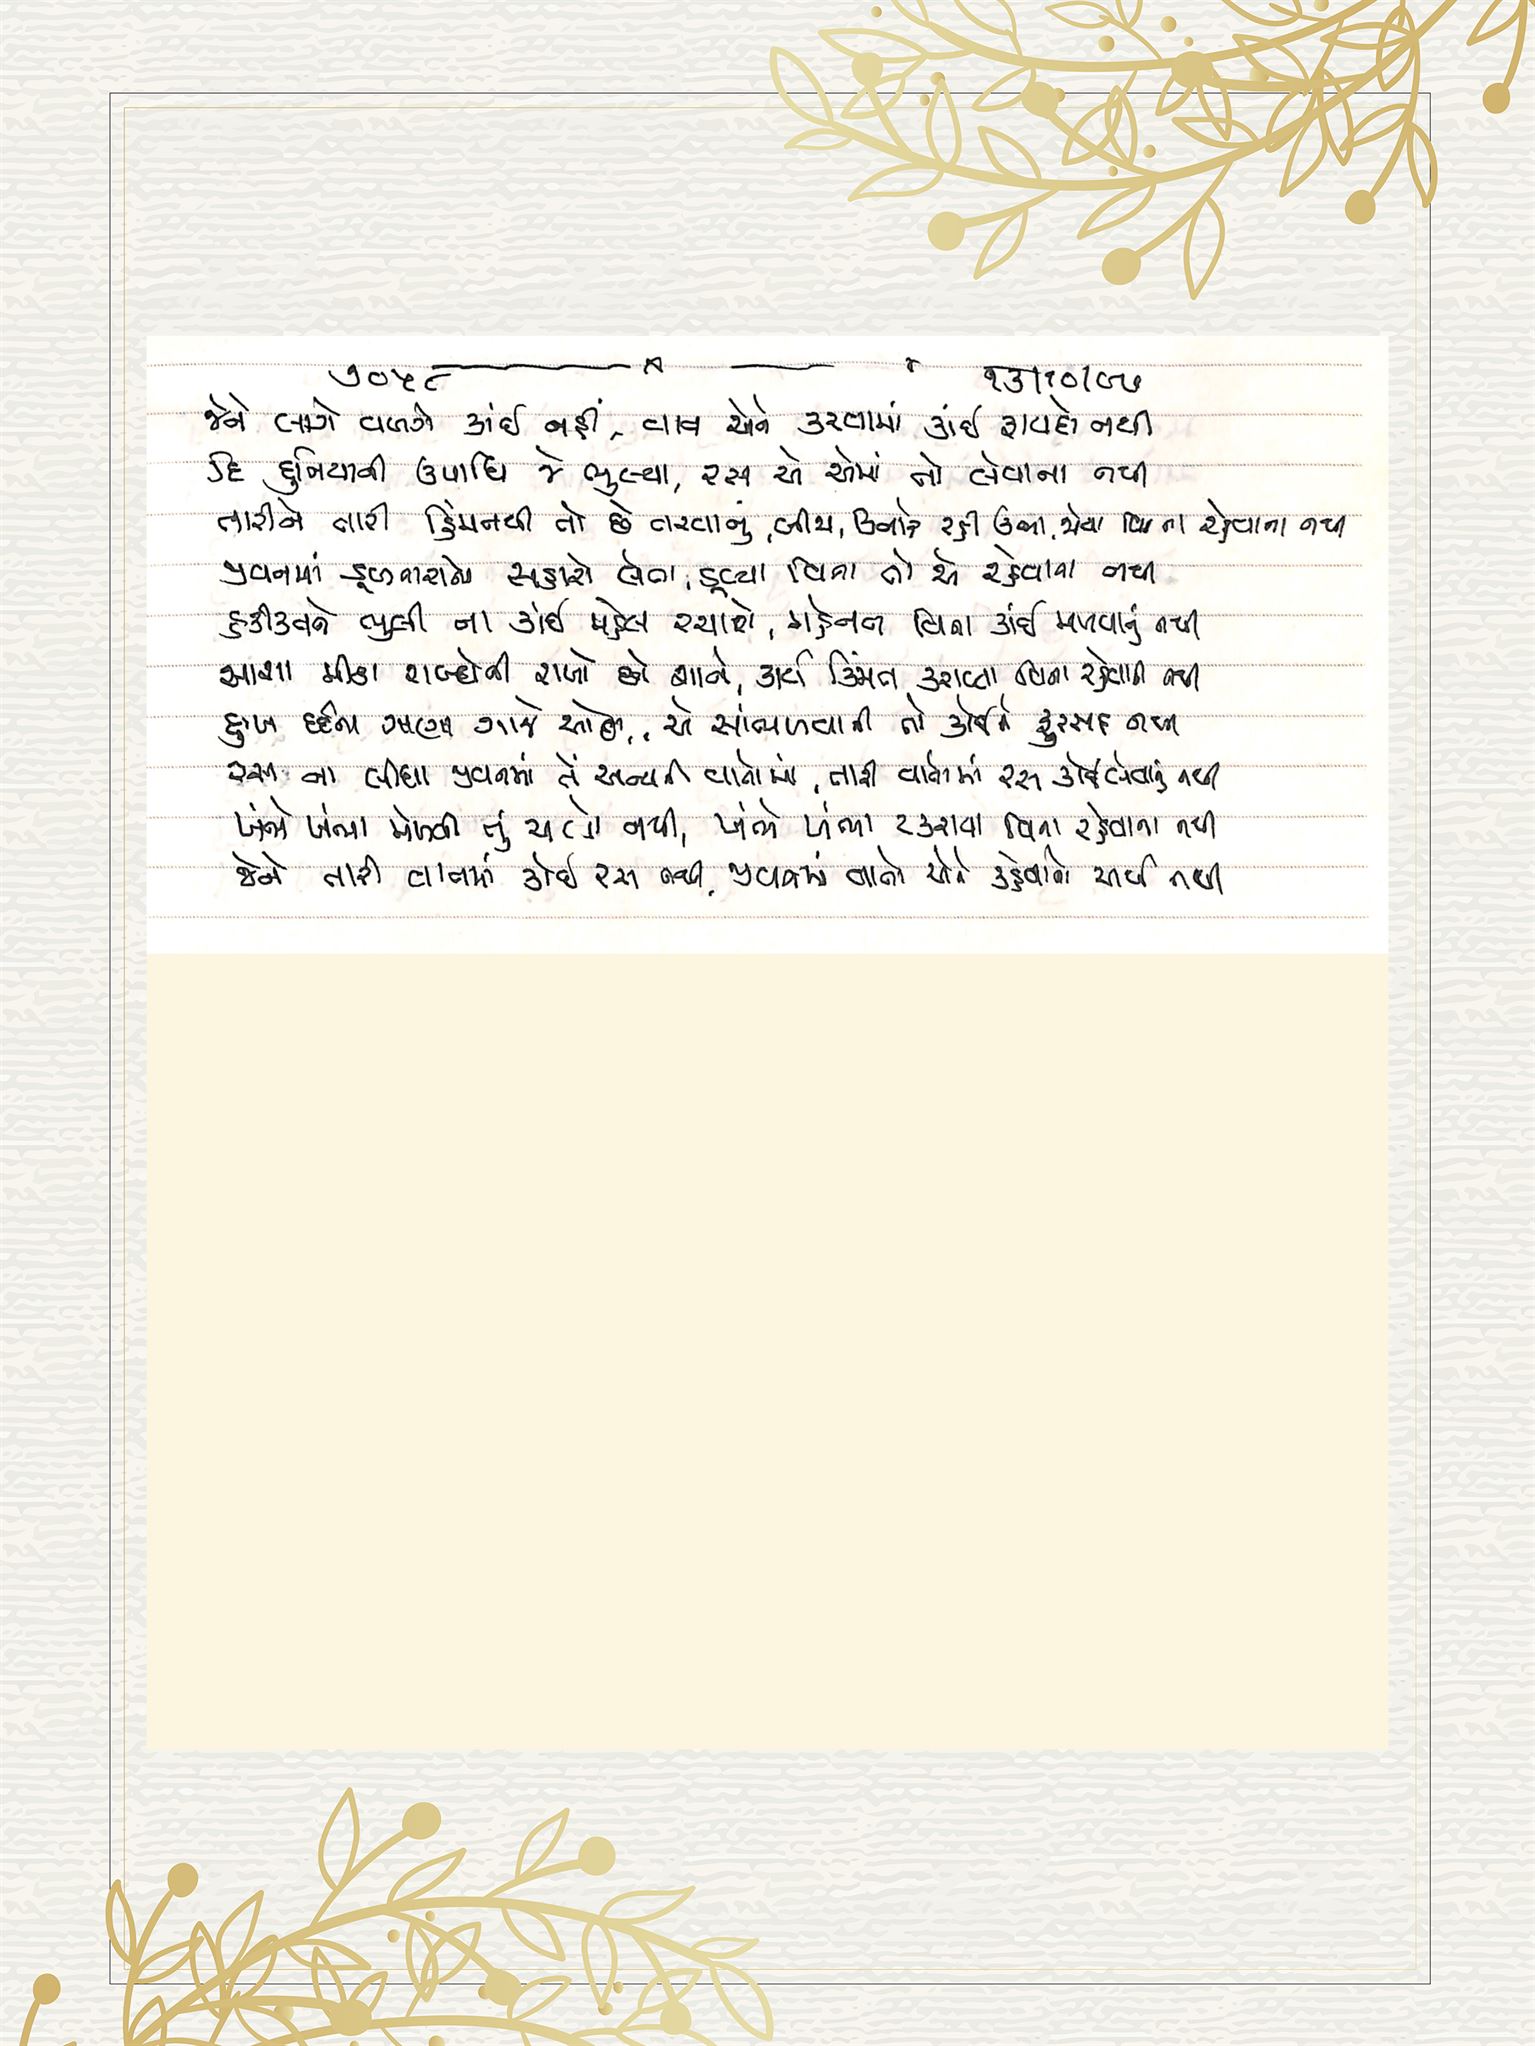 ૭૦૫૮ ૧૩/૧૦/૯૭
જેને લાગે વળગે કાંઈ નહીં, વાત એને કરવામાં કાંઈ ફાયદો નથી
દિ દુનિયાની ઉપાધિ જે ભુલ્યા, રસ એ એમાં તો લેવાના નથી
તારીને તારી હિંમતથી તો છે તરવાનું, કિનારે રહી ઉભા, જોયા વિના રહેવાના નથી
જીવનમાં ડૂબનારાનો સહારો લેતા, ડૂબ્યા વિના તો એ રહેવાના નથી
હકીકતને ભુલી ના કાંઈ મહેલ રચાશે, મહેનત વિના કાંઈ મળવાનું નથી
આશા મીઠા શબ્દોની રાખો છો શાને, કાર્ય કિંમત કરાવ્યા વિના રહેવાની નથી
દુઃખ દર્દના ગાજે, એ સાંભળવાની તો કોઈને ફુરસદ નથી
રસ ના લીધા જીવનમાં તેં અન્યની વાતોમાં, તારી વાતોમાં રસ કોઈ લેવાનું નથી
ખંભે ખંભા મેળવી તું ચાલ્યો નથી, ખંભે ખંભા ટકરાયા વિના રહેવાના નથી
જેને તારી વાતમાં કોઈ રસ નથી, જીવનમાં વાતો એને કહેવાનો અર્થ નથી